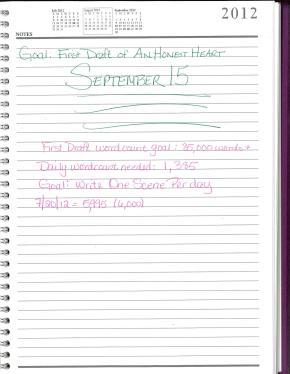 July 2012 August 2012 September 2012
2012
NOTES
Goal: First Draft of AN HONEST HEART
SEPTEMBER 15
First Draft wordcount goal: 85,000 words +
Daily wordcount needed: 1,385
Goal: Write One Scene Per day
7/20/12 = 5,995 (6,000)